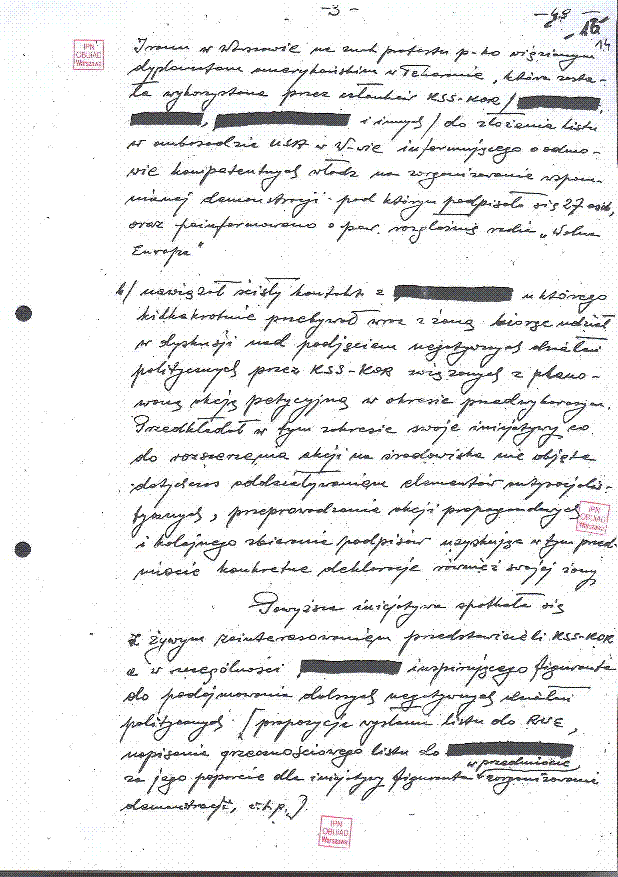 - 3 -
- 49 -
16
14
IPN
OBUiAD
Warszawa
Iranu w Warszawie na znak protestu p-ko więzionym
dyplomatom amerykańskim w Teheranie, która zosta-
ła wykorzystana przez członków KSS-KOR /
, i innych / do złożenia listu
w ambasadzie USA w W-wie informującego o odmo-
wie kompetentnych władz na zorganizowanie wspom-
nianej demonstracji pod którym podpisało się 27 osób,
oraz poinformowano o pow. rozgłośnię radia „Wolna
Europa"
b/ nawiązał ścisły kontakt z u którego
kilkakrotnie przebywał wraz z żoną biorąc udział
w dyskusji nad podjęciem negatywnych działań
politycznych przez KSS-KOR związanych z plano-
waną akcją petycyjną w okresie przedwyborczym.
Przedkładał w tym zakresie swoje inicjatywy co
do rozszerzenia akcji na środowiska nie objęte
dotychczas oddziaływaniem elementów antysocjalis-
tycznych, przeprowadzenia akcji propagandowych
i kolejnego zbierania podpisów uzyskując w tym przed-
miocie konkretne deklaracje również swojej żony
IPN
OBUiAD
Warszawa
Powyższa inicjatywa spotkała się
z żywym zainteresowaniem przedstawicieli KSS-KOR
a w szczególności inspirującego figuranta
do podejmowania dalszych negatywnych działań
politycznych. / propozycja wysłania listu do RWE,
napisania grzecznościowego listu do
w przedmiocie
za jego poparcie dla inicjatywy figuranta zorganizowania
demonstracji, i t.p. /
IPN
OBUiAD
Warszawa